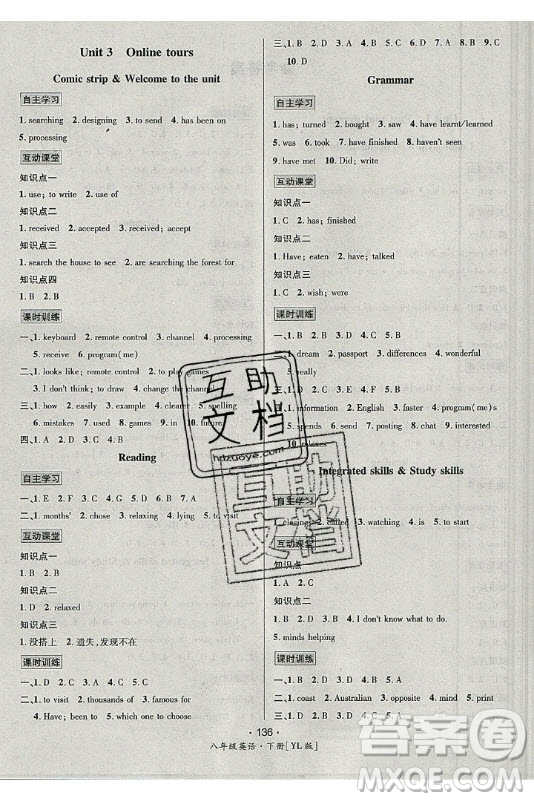 Unit 3 Online tours
Comic strip & Welcome to the unit
自主学习
1. searching 2. designing 3. to show 4. has been on
5. processing
互动课堂
知识点一
1. use; to write 2. use of
知识点二
1. received 2. accepted 3. received; accept
知识点三
1. search the house to see 2. are searching the forest for
知识点四
1. B 2. B
课时训练
一、1. keyboard 2. remote control 3. channel 4. processing
5. receive 6. program(me)
二、1. looks like; remote control 2. to play games
3. I don't think; to draw 4. change the channel
三、1. how 2. easily 3. example 4. cleaner 5. spelling
6. mistakes 7. used 8. games 9. on 10. in future
四、1. D 2. A 3. C 4. B
Reading
自主学习
一、1. E 2. F 3. D 4. C 5. B 6. A
二、1. months' 2. chose 3. relaxing 4. lying 5. to visit
互动课堂
知识点一
1. B 2. B
知识点二
1. D 2. relaxed
知识点三
1. 没搭上 2. 遗失,发现不在
课时训练
一、1. D 2. C 3. D 4. A 5. C 6. A 7. C
二、1. to visit 2. thousands of 3. famous for 4. hope to
5. Have; noticed 6. at the top of
三、1. D 2. D 3. A 4. D 5. A 6. B 7. A 8. B 9. C
10. D
Grammar
自主学习
1. has; turned 2. bought 3. saw 4. have learnt/learned
5. was 6. took 7. have finished 8. haven't finished
9. have met 10. Did; write
互动课堂
知识点一
1. C 2. has; finished
知识点二
1. Have; eaten 2. have; talked
知识点三
1. C 2. wish; were
课时训练
一、1. B 2. D 3. C 4. C 5. B
二、1. dream 2. passport 3. differences 4. wonderful
5. really
三、1. information 2. English 3. further 4. program(me)s
5. spends 6. or 7. kinds 8. on 9. while
10. relaxes
Integrated skills & Study skills
自主学习
1. closing 2. called 3. watching 4. is 5. to start
互动课堂
知识点一
1. A 2. C
知识点二
1. D 2. B 3. to make/making 4. do; mind; not
5. minds helping
课时训练
一、1. D 2. B 3. A 4. C 5. D
二、1. coast 2. Australian 3. opposite 4. prepared
136
八年级英语·下册[YL版]
互助文档
hdzuoye.com
互助文档
答案圈
MXQE.COM